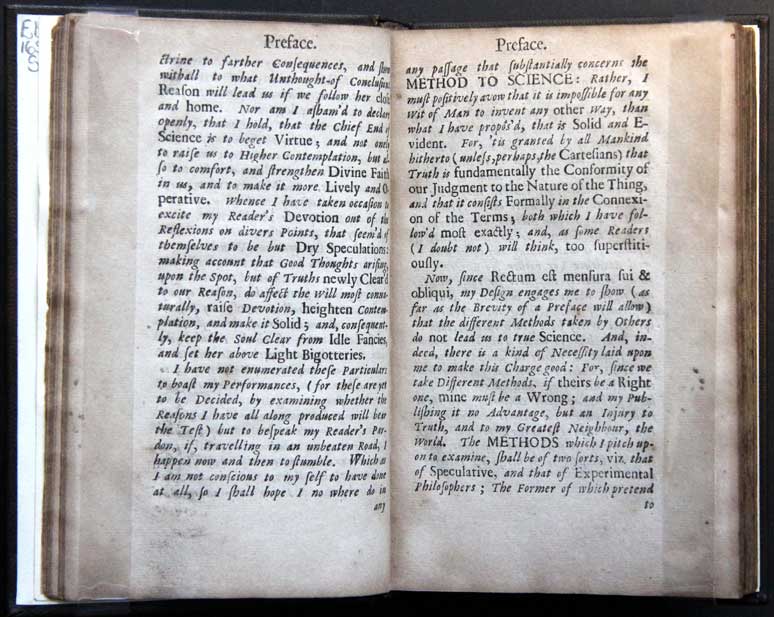 Preface.
ctrine to farther Consequences, and ſhow
withall to what Unthought-of Concluſions
Reaſon will lead us if we follow her cloſe
and home. Nor am I aſham'd to declare
openly, that I hold, that the Chief End of
Science is to beget Virtue; and not onely
to raiſe us to Higher Contemplation, but al-
ſo to comfort, and ſtrengthen Divine Faith
in us, and to make it more Lively and O-
perative. Whence I have taken occaſion to
excite my Reader's Devotion out of the
Reflexions on divers Points, that ſeem'd of
themſelves to be but Dry Speculations:
making account that Good Thoughts ariſing,
upon the Spot, but of Truths newly Clear'd
to our Reaſon, do affect the Will moſt connа-
turally, raiſe Devotion, heighten Contem-
plation, and make it Solid; and, conſequent-
ly, keep the Soul Clear from Idle Fancies,
and ſet her above Light Bigotteries.
I have not enumerated theſe Particulars
to boaſt my Performances, (for theſe are yet
to be Decided, by examining whether the
Reaſons I have all along produced will bear
the Teſt) but to beſpeak my Reader's Par-
don, if, travelling in an unbeaten Road, I
happen now and then to ſtumble. Which as
I am not conſcious to my ſelf to have done
at all, ſo I ſhall hope I no where do in
any
Preface.
any paſſage that ſubſtantially concerns the
METHOD TO SCIENCE: Rather, I
muſt poſitively avow that it is impoſſible for any
Wit of Man to invent any other Way, than
what I have propos'd, that is Solid and E-
vident. For, 'tis granted by all Mankind
hitherto (unleſs, perhaps, the Carteſians) that
Truth is fundamentally the Conformity of
our Judgment to the Nature of the Thing,
and that it conſiſts Formally in the Connexi-
on of the Terms; both which I have fol-
low'd moſt exactly; and, as ſome Readers
(I doubt not) will think, too ſuperſtiti-
ouſly.
Now, ſince Rectum eſt menſura ſui &
obliqui, my Deſign engages me to ſhow (as
far as the Brevity of a Preface will allow)
that the different Methods taken by Others
do not lead us to true Science. And, in-
deed, there is a kind of Neceſſity laid upon
me to make this Charge good: For, ſince we
take Different Methods, if theirs be a Right
one, mine muſt be a Wrong; and my Pub-
liſhing it no Advantage, but an Injury to
Truth, and to my Greateſt Neighbour, the
World. The METHODS which I pitch up-
on to examine, ſhall be of two ſorts, viz. that
of Speculative, and that of Experimental
Philoſophers; The Former of which pretend
to